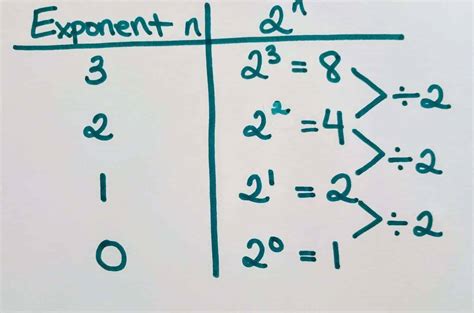 Exponent n 2ⁿ
3 2³ = 8
÷2
2 2² = 4
÷2
1 2¹ = 2
÷2
0 2⁰ = 1